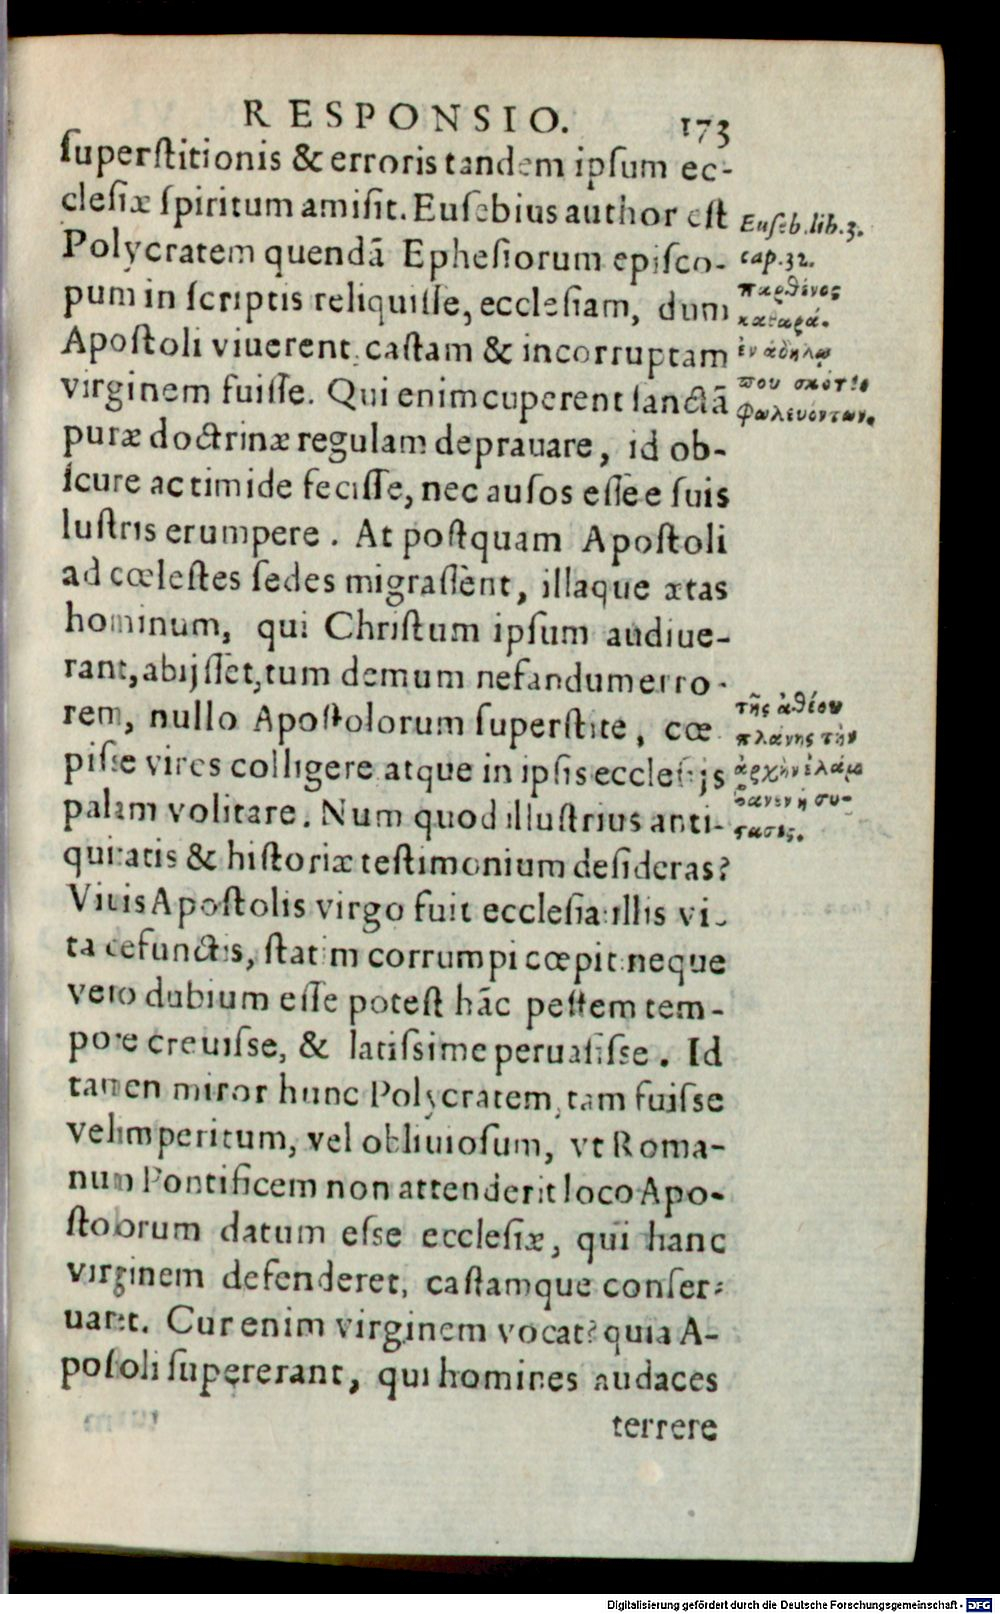 RESPONSIO. 173
ſuperſtitionis & erroris tandem ipſum ec-
cleſiæ ſpiritum amiſit. Euſebius author eſt
Polycratem quendā Epheſiorum epiſco-
pum in ſcriptis reliquiſſe, eccleſiam, dum
Apoſtoli viuerent, caſtam & incorruptam
virginem fuiſſe. Qui enim cuperent ſanctā
puræ doctrinæ regulam deprauare, id ob-
ſcure ac timide feciſſe, nec auſos eſſe e ſuis
luſtris erumpere. At poſtquam Apoſtoli
ad cœleſtes ſedes migraſſent, illaque ætas
hominum, qui Chriſtum ipſum audiue-
rant, abijſſet, tum demum nefandum erro-
rem, nullo Apoſtolorum ſuperſtite, cœ
piſſe vires colligere atque in ipſis eccleſijs
palam volitare. Num quod illuſtrius anti-
quitatis & hiſtoriæ teſtimonium deſideras?
Viuis Apoſtolis virgo fuit eccleſia: illis vi-
ta defunctis, ſtatim corrumpi cœpit: neque
vero dubium eſſe poteſt hāc peſtem tem-
pore creuiſse, & latiſsime peruaſiſse. Id
tamen miror hunc Polycratem, tam fuiſse
vel imperitum, vel obliuioſum, vt Roma-
num Pontificem non attenderit loco Apo-
ſtolorum datum eſse eccleſiæ, qui hanc
virginem defenderet, caſtamque conſer-
uaret. Cur enim virginem vocat? quia A-
poſtoli ſupererant, qui homines audaces
terrere
Euſeb. lib. 3.
cap. 32.
παρθένος
καθαρά.
ἐν ἀδήλῳ
που σκότει
φωλευόντων.
τῆς ἀθέου
πλάνης τὴν
ἀρχὴν ἐλάμ
βανεν ἡ συ-
στασις.
Digitalisierung gefördert durch die Deutsche Forschungsgemeinschaft - DFG